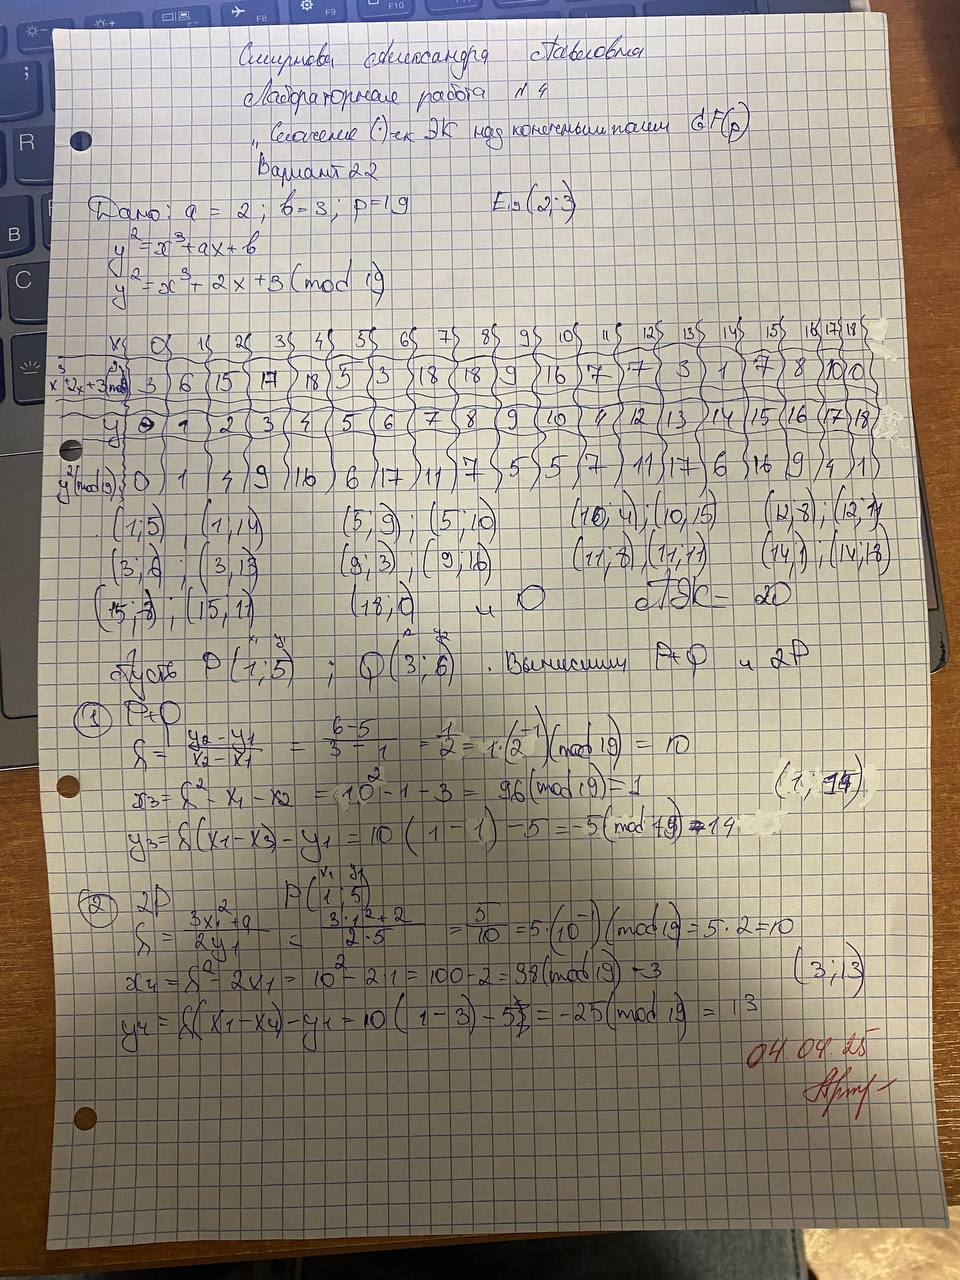 Смирнова Александра Павловна
Лабораторная работа №4
"Сложение (·)-ек ЭК над конечным полем GF(p)
Вариант 22
Дано: a = 2; b = 3; p = 19 E₁₉(2;3)
y² = x³ + ax + b
y² = x³ + 2x + 3 (mod 19)
x 0 1 2 3 4 5 6 7 8 9 10 11 12 13 14 15 16 17 18
x³+2x+3(mod 19) 3 6 15 17 18 5 3 18 18 9 16 7 7 3 1 7 8 10 0
y 0 1 2 3 4 5 6 7 8 9 10 11 12 13 14 15 16 17 18
y²(mod 19) 0 1 4 9 16 6 17 11 7 5 5 7 11 17 6 16 9 4 1
(1;5) ; (1,14) (5;9) ; (5;10) (10;4);(10,15) (12;8);(12;11)
(3;6) ; (3,13) (9;3) ; (9;16) (11;8),(11,11) (14,1) ; (14;18)
(15;8) ; (15,11) (18;0) и O = 20
Пусть P(1;5) ; Q(3;6). Вычислим P+Q и 2P
x₁ y₁ x₂ y₂
① P+Q
λ = (y₂-y₁)/(x₂-x₁) = (6-5)/(3-1) = 1/2 = 1·(2⁻¹)(mod 19) = 10
x₃ = λ² - x₁ - x₂ = 10² - 1 - 3 = 96(mod 19) = 1 (1; 14)
y₃ = λ(x₁-x₃) - y₁ = 10(1-1) - 5 = -5(mod 19) = 14
② 2P P(1;5)
x₁ y₁
λ = (3x₁²+a)/(2y₁) = (3·1²+2)/(2·5) = 5/10 = 5·(10⁻¹)(mod 19) = 5·2 = 10
x₄ = λ² - 2x₁ = 10² - 2·1 = 100-2 = 98(mod 19) = 3 (3;13)
y₄ = λ(x₁-x₄) - y₁ = 10(1-3) - 5 = -25(mod 19) = 13
04.04.25